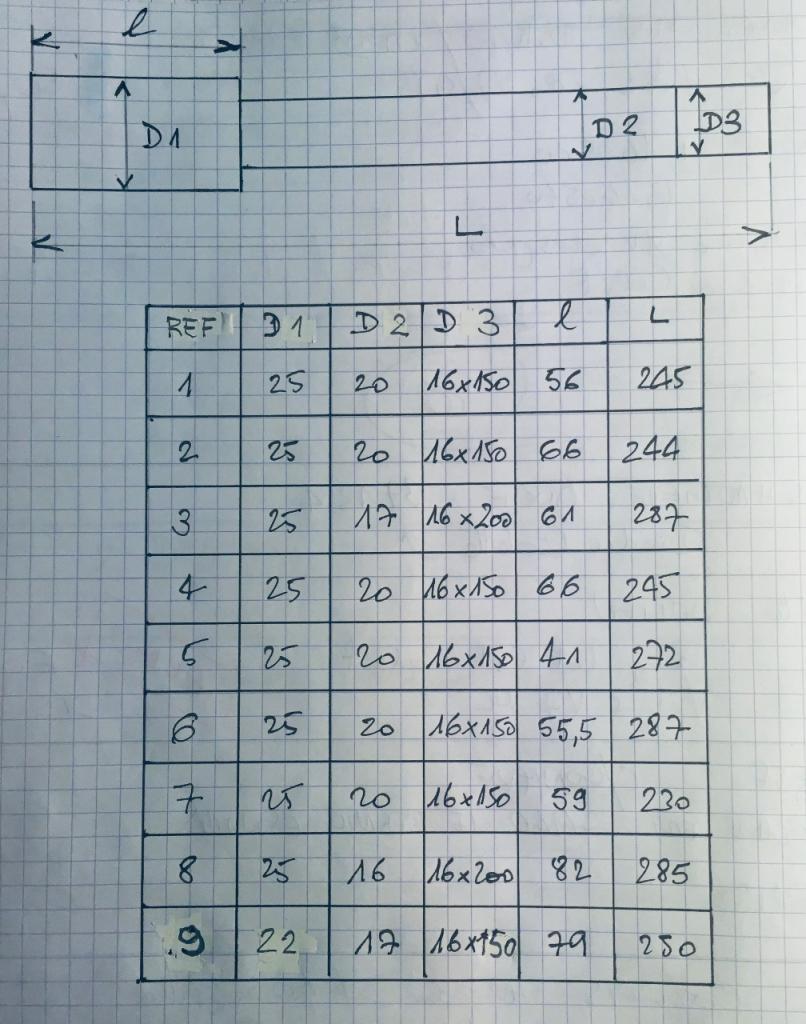 l
D1
D2
D3
L
REF D1 D2 D3 l L
1 25 20 16x150 56 245
2 25 20 16x150 66 244
3 25 17 16x200 61 287
4 25 20 16x150 66 245
5 25 20 16x150 41 272
6 25 20 16x150 55,5 287
7 25 20 16x150 59 230
8 25 16 16x200 82 285
9 22 17 16x150 79 250